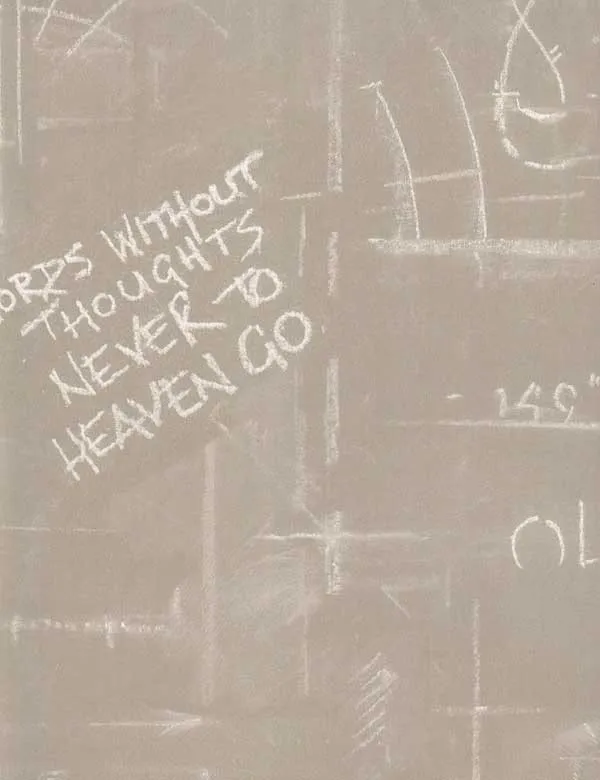 ORDS WITHOUT
THOUGHTS
NEVER TO
HEAVEN GO
OL